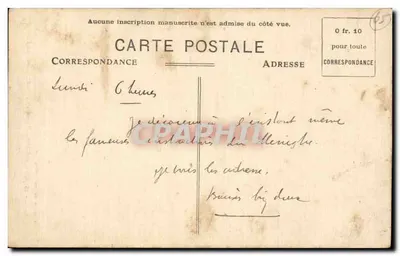 Aucune inscription manuscrite n'est admise du côté vue.
CARTE POSTALE
CORRESPONDANCE
ADRESSE
0 fr. 10
pour toute
CORRESPONDANCE
Lundi 6 heures
Je à l'instant même
les fameuses du
je les adresse.
Baisers